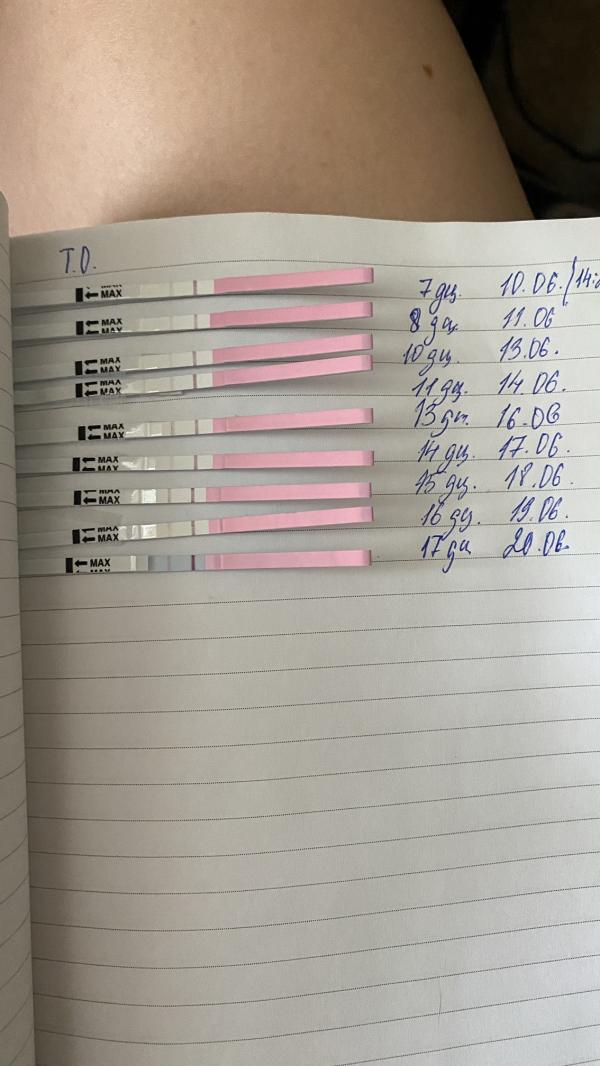 Т.О.
MAX 7 дц. 10.06. (14:
MAX 8 дц. 11.06
MAX 10 дц. 13.06.
MAX 11 дц. 14.06.
MAX 13 дц. 16.06
MAX 14 дц. 17.06.
MAX 15 дц. 18.06.
MAX 16 дц. 19.06.
MAX 17 дц 20.06.